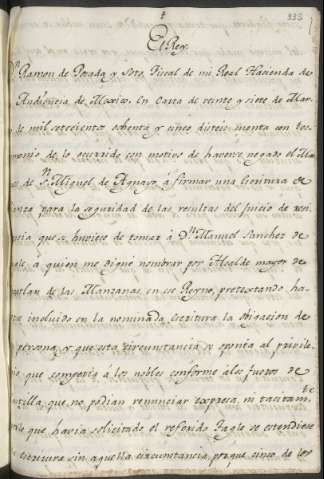 333
El Rey.
Dn. Ramon de Posada y Soto Fiscal de mi Real Hacienda de
Audiencia de Mexico. En Carta de veinte y siete de Mar-
de mil setecientos ochenta y cinco disteis cuenta con tes-
monio de lo ocurrido con motivo de haverse negado el Mar
es de Sn. Miguel de Aguayo, á firmar una Escritura de
anza para la seguridad de las resultas del Juicio de resi
ncia que se huviese de tomar á Dn. Manuel Sanchez de
á quien me digné nombrar por Alcalde mayor de
de las Manzanas, en ese Reyno, pretextando ha-
incluido en la nominada escritura la obligacion de
persona, y que esta circunstancia se oponia al privile
io que competia á los nobles conforme á los fueros de
stilla, que no podian renunciar expresa, ni tacitamte.
que havia solicitado el referido Tagle se estendiese
escritura sin aquella circunstancia, porque cinco de los